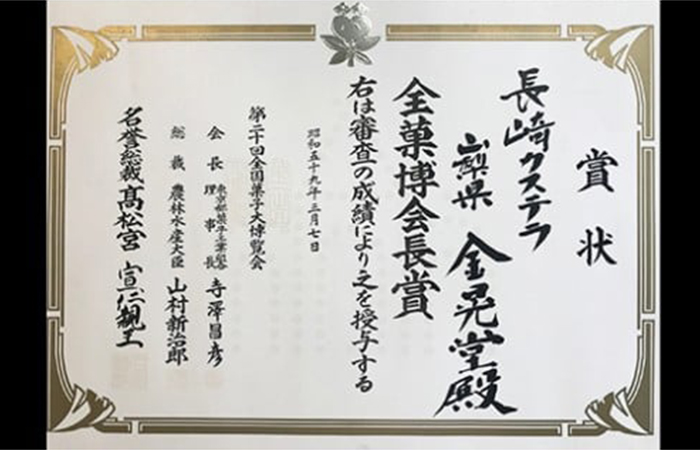 賞状
長崎クステラ
山梨県 金晃堂殿
全菓博会長賞
右は審査の成績により之を授与する
昭和五十九年三月七日
第二十回全国菓子大博覧会
会長 東京都菓子工業組合理事長 寺澤昌彦
総裁 農林水産大臣 山村新治郎
名誉総裁 髙松宮宣仁親王